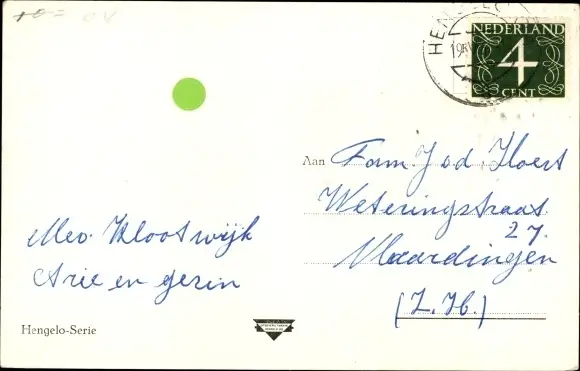 HENGELO
NEDERLAND
4
CENT
Aan Fam. J v d Kloest
Weteringstraat
27.
Vlaardingen
(Z.H.)
Mev. Klootwijk
Arie en gezin
Hengelo-Serie